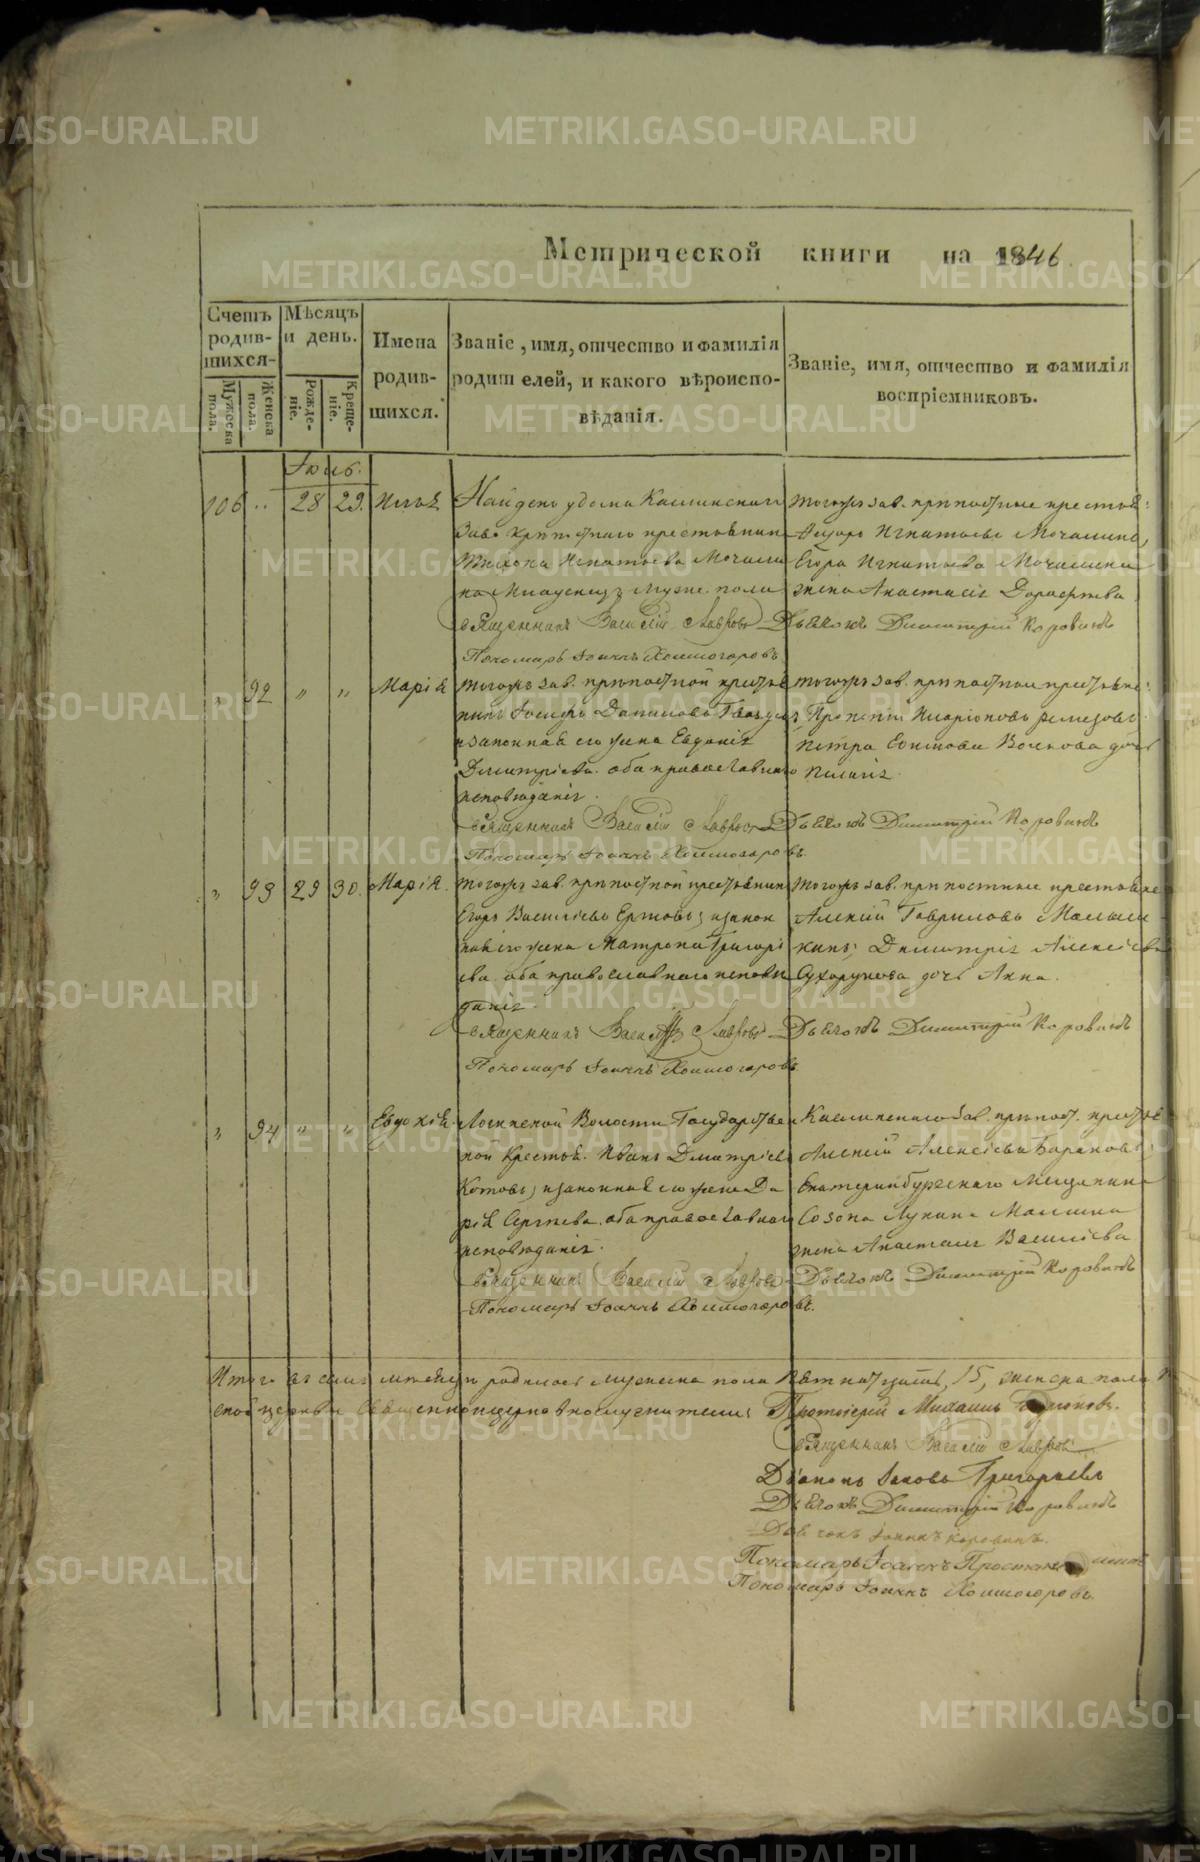 Метрической книги на 1846
Счетъ родившихся
Мѣсяцъ и день.
Имена родившихся.
Званіе, имя, отчество и фамилія родителей, и какого вѣроисповѣданія.
Званіе, имя, отчество и фамилія воспріемниковъ.
Мужеска пола.
Женска пола.
Рожденіе.
Крещеніе.
Іюль.
106 28 29. Илья
Найденъ у дома Каслинскаго
зав. крѣпостнаго крестьянина
Игнатьева Мочали
на младенецъ муже. пола
Священникъ Василій Лавровъ
Пономарь Іоаннъ Холмогоровъ
тогожъ зав. крѣпостные крестья:
Игнатьевъ Мочалинъ,
Егора Игнатьева Мочалина
жена Анастасія Дорофеева
Дьячокъ Димитрій Коровинъ
92 " " Марія
тогожъ зав. крѣпостной крестья
нинъ Іосифъ Даниловъ
и законная его жена Евдокія
Димитріева. оба православнаго
исповѣданія.
Священникъ Василій Лавровъ
Пономарь Іоаннъ Холмогоровъ
тогожъ зав. крѣпостные крестьяне:
Иларіоновъ Ремезовъ
Петра Волкова дочь
Пелагія.
Дьячокъ Димитрій Коровинъ
" 93 29 30. Марія.
тогожъ зав. крѣпостной крестьянинъ
Егоръ Васильевъ и закон
ная его жена Матрона Григорі
ева. оба православнаго исповѣ
данія.
Священникъ Василій Лавровъ
Пономарь Іоаннъ Холмогоровъ
тогожъ зав. крѣпостные крестьяне
Алексій Гавриловъ Малыш
кинъ; Димитрія Алексѣева
Сухорукова дочь Анна.
Дьячокъ Димитрій Коровинъ
" 94 " " Евдокія.
Волости Государствен
ной крестья. Иванъ Дмитріевъ
Котовъ, и законная его жена Да
рія Сергѣева. оба православнаго
исповѣданія.
Священникъ Василій Лавровъ
Пономарь Іоаннъ Холмогоровъ.
Каслинскаго зав. крѣпост. крестья
Алексій Алексѣевъ Барановъ;
Екатеринбургскаго мещанина
Созона Лукина
жена Анастасія Васильева
Дьячокъ Димитрій Коровинъ
Итого въ семъ мѣсяцѣ родилось мужеска пола пятнатцать, 15, женска пола
Протоіерей Михаилъ
Священникъ Василій Лавровъ
Діаконъ Іаковъ Григорьевъ
Дьячокъ Димитрій Коровинъ
Дьячокъ Іоаннъ Коровинъ.
Пономарь Іоаннъ
Пономарь Іоаннъ Холмогоровъ.
METRIKI.GASO-URAL.RU